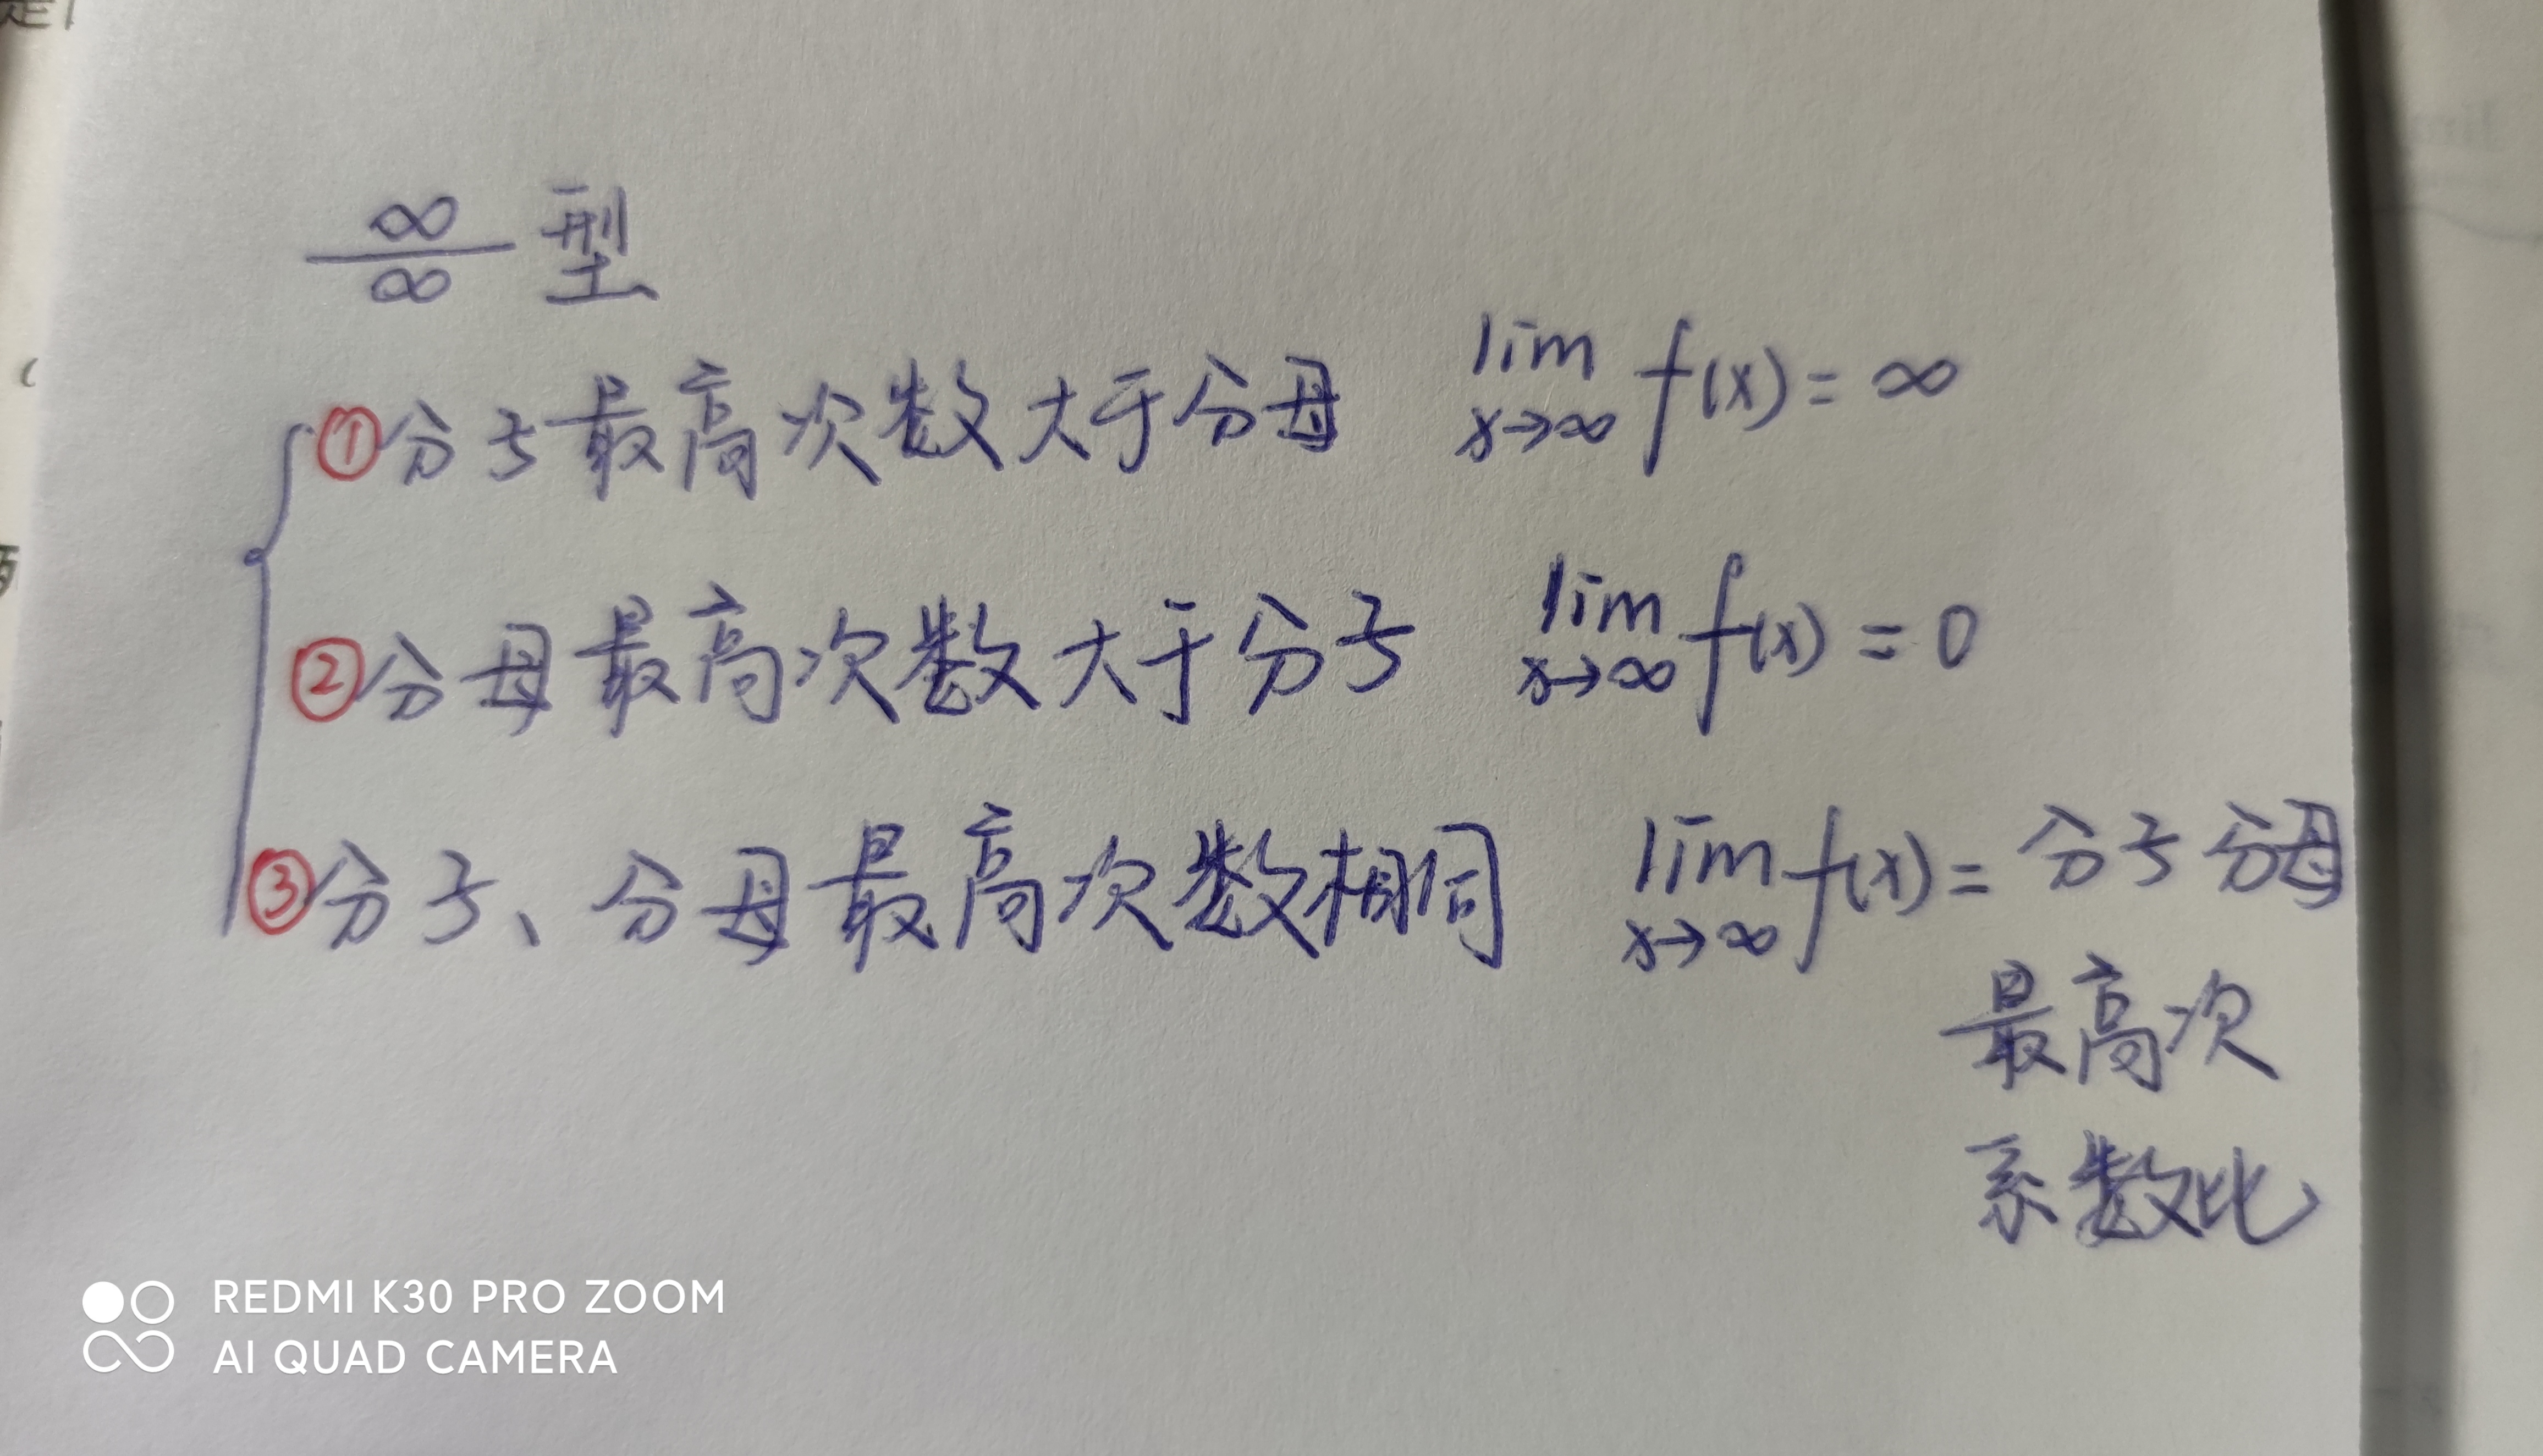 ∞/∞ 型
①分子最高次数大于分母 lim x→∞ f(x) = ∞
②分母最高次数大于分子 lim x→∞ f(x) = 0
③分子、分母最高次数相同 lim x→∞ f(x) = 分子分母
最高次
系数比
REDMI K30 PRO ZOOM
AI QUAD CAMERA